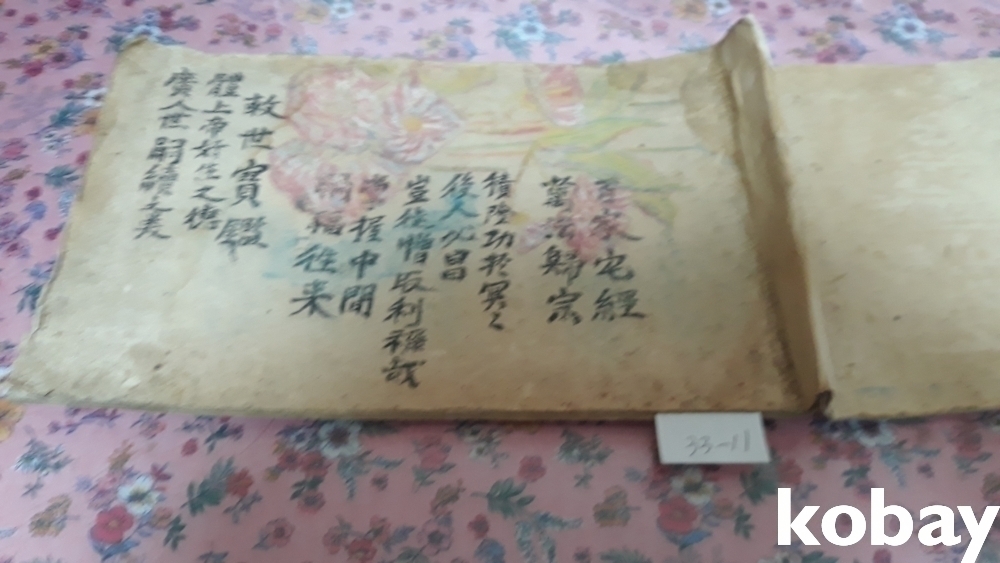 家宅經
萬法歸宗
積陰功於冥々
後人必昌
豈徒惜取利祿哉
掌握中間
禍福往来
救世寶鑑
體上帝好生之德
廣人世嗣續之美
33-11
kobay